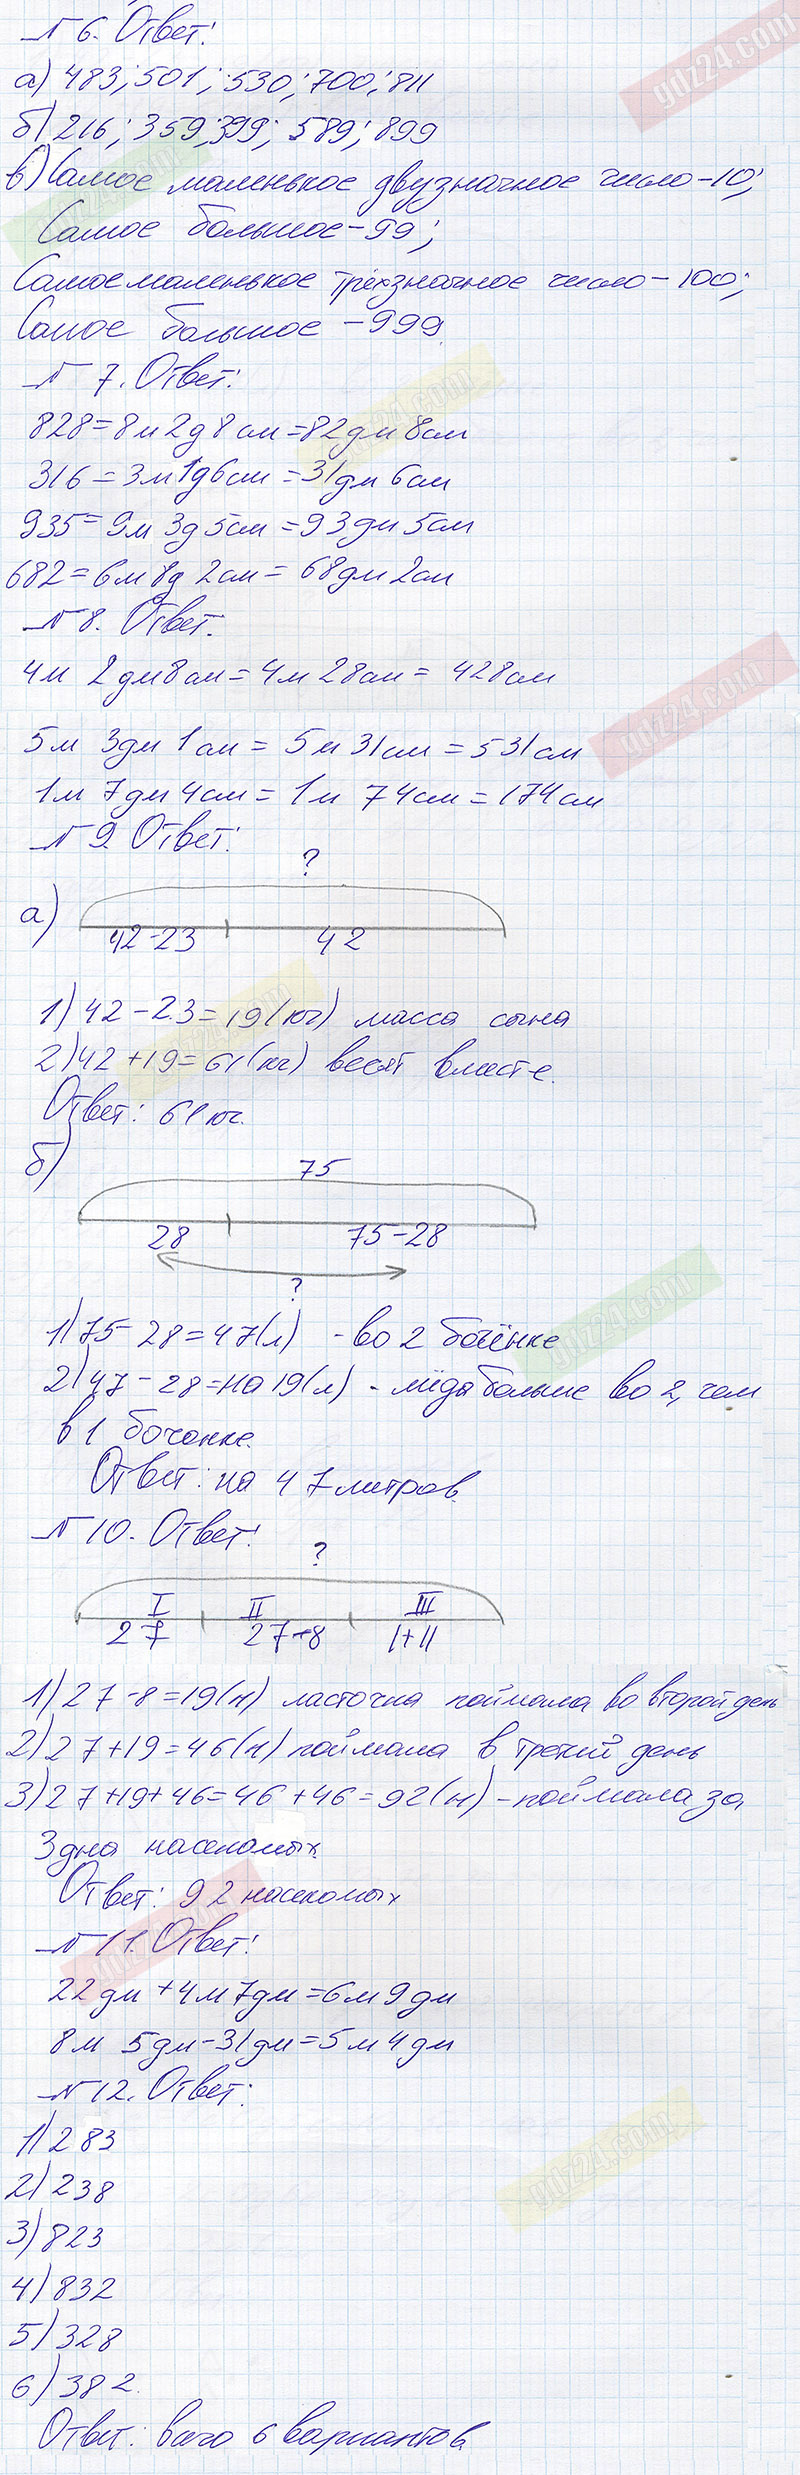 № 6. Ответ:
а) 483; 501; 530; 700; 811
б) 216; 359; 399; 589; 899
в) Самое маленькое двузначное число – 10;
Самое большое – 99;
Самое маленькое трёхзначное число – 100;
Самое большое – 999
№ 7. Ответ:
828 = 8м 2д 8см = 82дм 8см
316 = 3м 1д 6см = 31дм 6см
935 = 9м 3д 5см = 93дм 5см
682 = 6м 8д 2см = 68дм 2см
№ 8. Ответ.
4м 2дм 8см = 4м 28см = 428см
5м 3дм 1см = 5м 31см = 531см
1м 7дм 4см = 1м 74см = 174см
№ 9. Ответ:
?
а)
42-23 42
1) 42 - 23 = 19 (кг) масса сына
2) 42 + 19 = 61 (кг) весят вместе.
Ответ: 61 кг.
б)
75
28 75-28
?
1) 75 - 28 = 47 (л) - во 2 бочёнке
2) 47 - 28 = на 19 (л) - мёда больше во 2, чем
в 1 бочонке.
Ответ: на 47 литров.
№ 10. Ответ:
?
I II III
27 27-8 I+II
1) 27 - 8 = 19 (н) ласточка поймала во второй день
2) 27 + 19 = 46 (н) поймала в третий день
3) 27 + 19 + 46 = 46 + 46 = 92 (н) - поймала за
3 дня насекомых.
Ответ: 92 насекомых
№ 11. Ответ:
22дм + 4м 7дм = 6м 9дм
8м 5дм - 31дм = 5м 4дм
№ 12. Ответ:
1) 283
2) 238
3) 823
4) 832
5) 328
6) 382.
Ответ: всего 6 вариантов.
gdz24.com